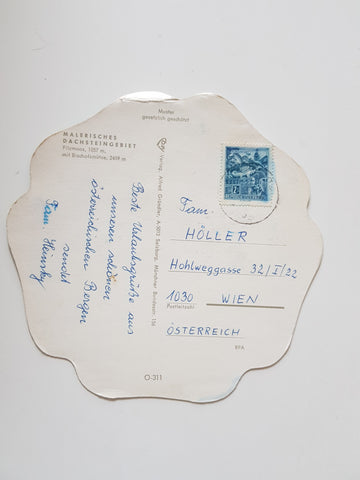 Muster
gesetzlich geschützt
MALERISCHES
DACHSTEINGEBIET
Filzmoos, 1057 m,
mit Bischofsmütze, 2459 m
Verlag, Alfred Gründler, A-5013 Salzburg, Münchner Bundesstr. 156
Beste Urlaubsgrüße aus
unseren schönen
österreichischen Bergen
sendet
Fam.
Fam.
HÖLLER
Hohlweggasse 32/I/22
1030 WIEN
Postleitzahl
ÖSTERREICH
RPA
O-311